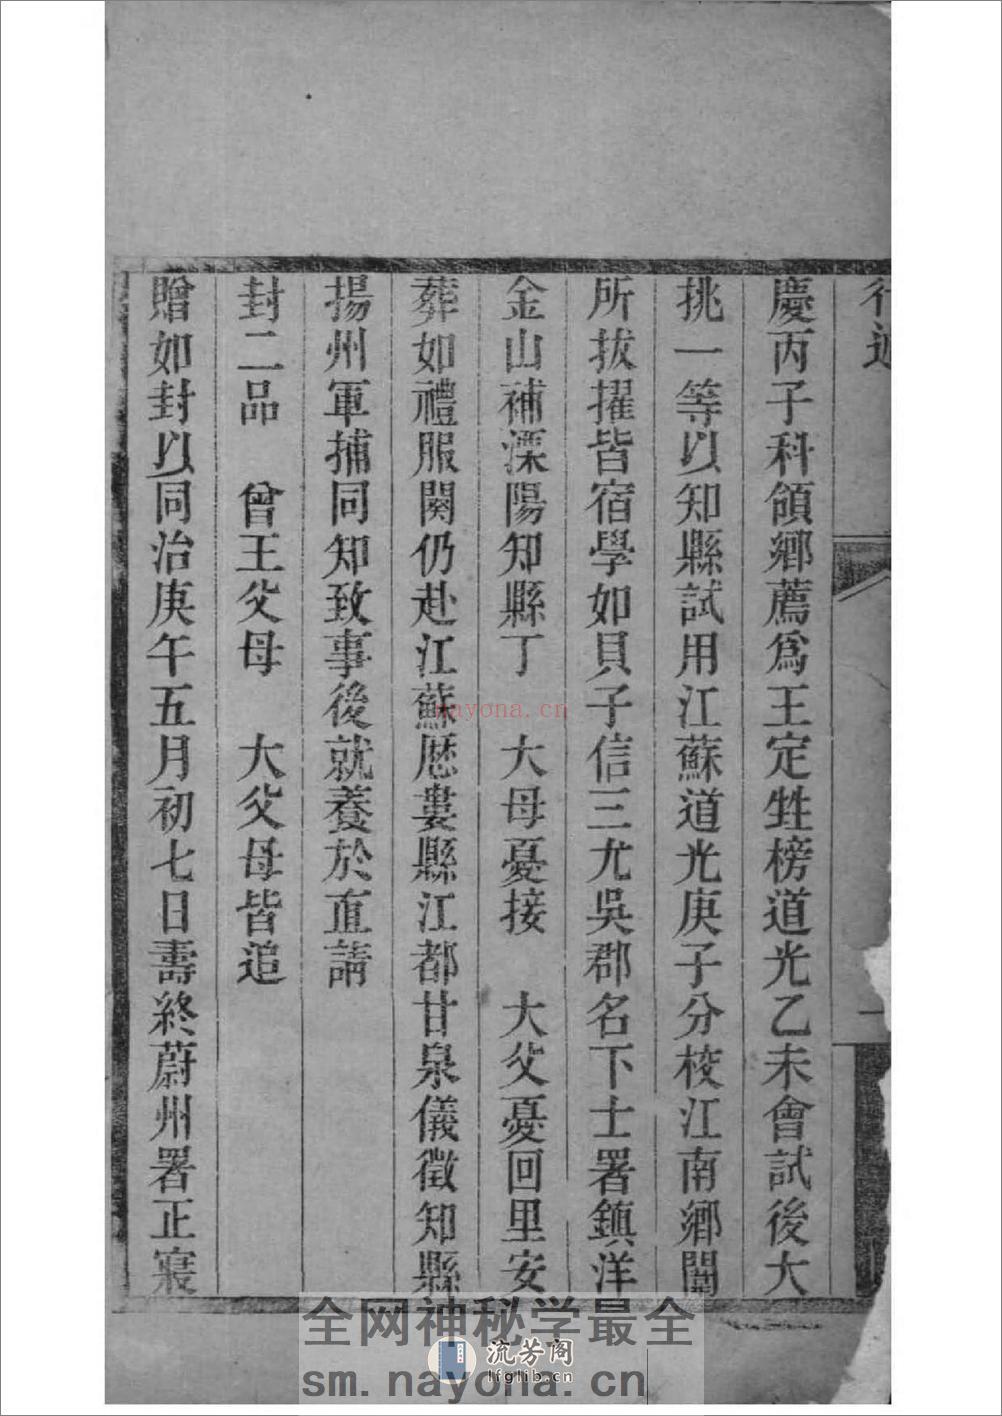 行述
一
慶丙子科領鄉薦爲王定甡榜道光乙未會試後大
挑一等以知縣試用江蘇道光庚子分校江南鄉闈
所拔擢皆宿學如貝子信三尤吳郡名下士署鎮洋
金山補溧陽知縣丁　大母憂接　大父憂回里安
葬如禮服闋仍赴江蘇歷婁縣江都甘泉儀徵知縣
揚州軍捕同知致事後就養於直請
封二品　曾王父母　大父母皆追
贈如封以同治庚午五月初七日壽終蔚州署正寢
nayona.cn
全网神秘学最全
流芳阁
lfglib.cn
sm.nayona.cn